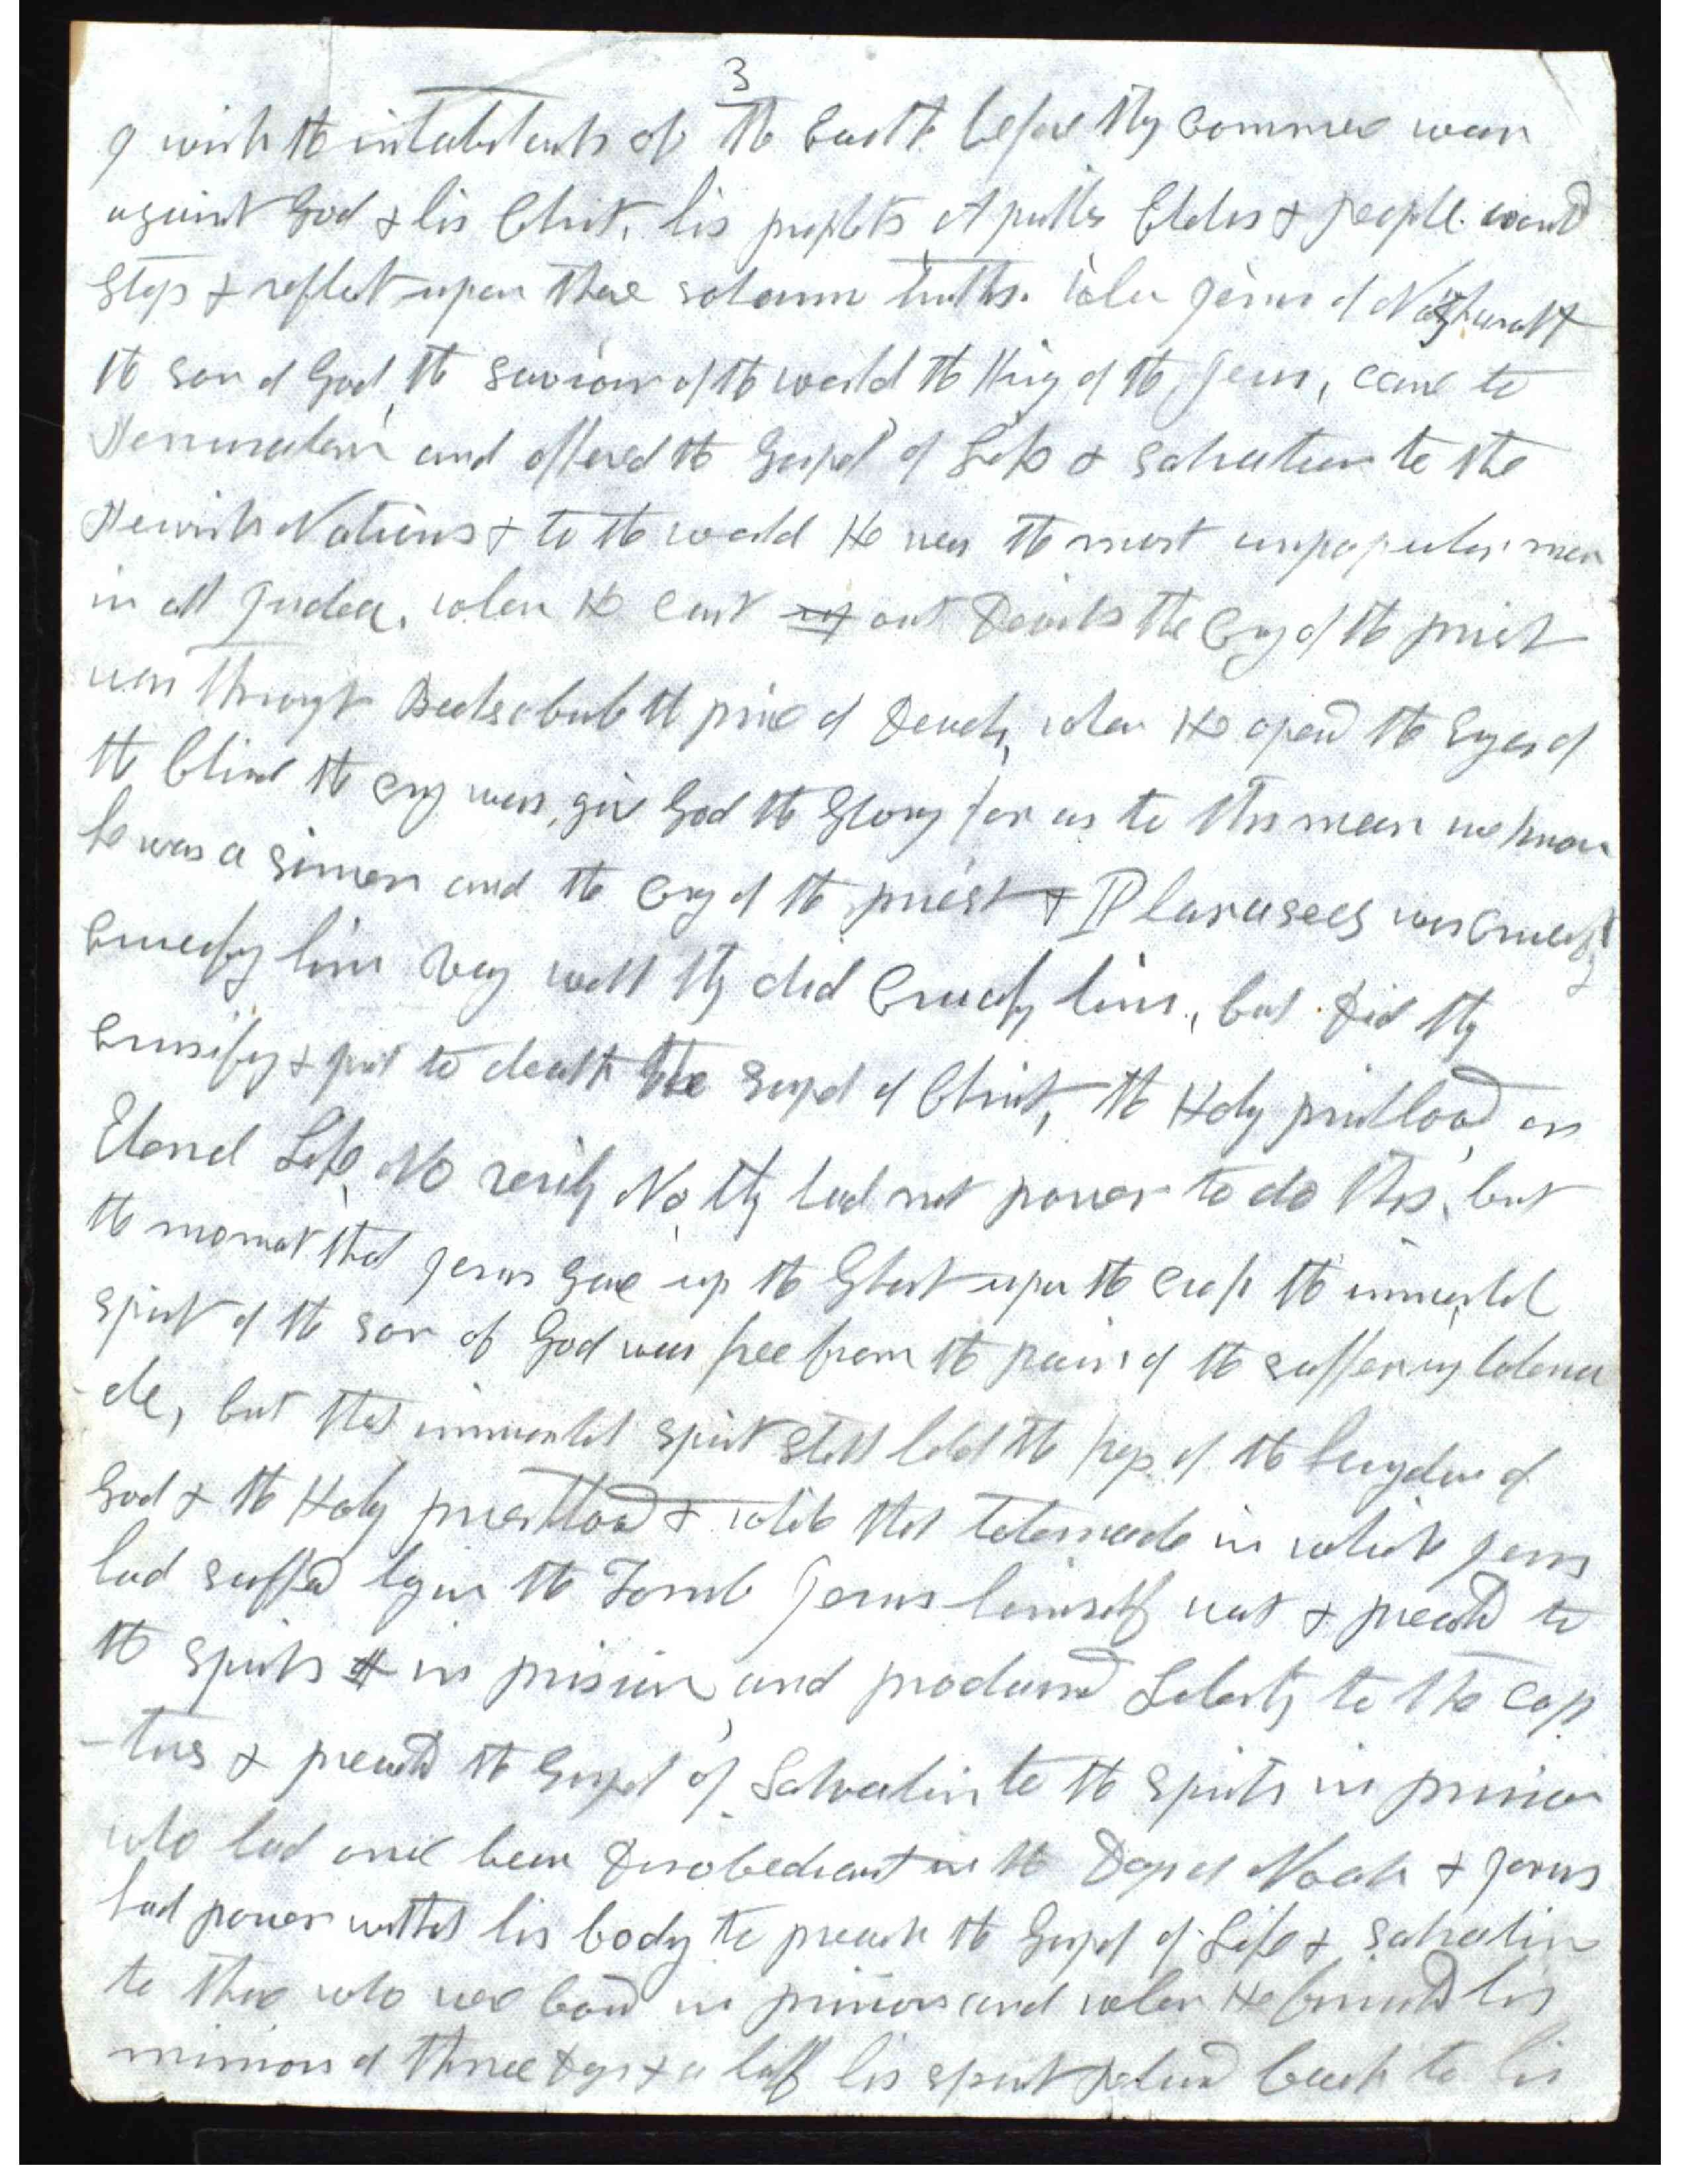 3
I wish the inhabitants of the Earth before they commence war
against God & his Christ, his prophets Apostles Elders & people would
stop & reflect upon these solemn truths. when Jesus of Nazhareth
the son of God, the saviour of the world the King of the Jews, came to
Jerrusalem and offered the Gospel of Life & salvation to the
Jewish Nations & to the world He was the most unpopular man
in all Judea. when He cast out Devils the Cry of the priest
was through Beelsebub the prince of Devels, when He opend the Eyes of
the blind the cry was, give God the Glory for as to this man we know
he was a sinner and the Cry of the priest & Pharasees was Crucify
Crucify him very well they did Crucify him, but Did they
Crusify & put to death the Gospel of Christ, the Holy priesthood, or
Eternal Life, No verily No, they had not power to do this, but
the moment that Jesus Gave up the Ghost upon the cross the immortal
spirit of the son of God was free from the pains of the suffering taberna
-cle, but that immortal spirit still held the keys of the kingdom of
God & the Holy priesthood & while that tabernacle in which Jesus
had suffed lay in the Tomb Jesus himself went & preachd to
the spirits in prision, and proclaimd Liberty to the cap
-tives & preachd the Gospel of Salvation to the spirits in prision
who had once been Disobediant in the Days of Noah & Jesus
had power without his body to preach the Gospel of Life & salvation
to those who were bound in prision and when He finished his
mission of three days & a half his spirit returnd back to his